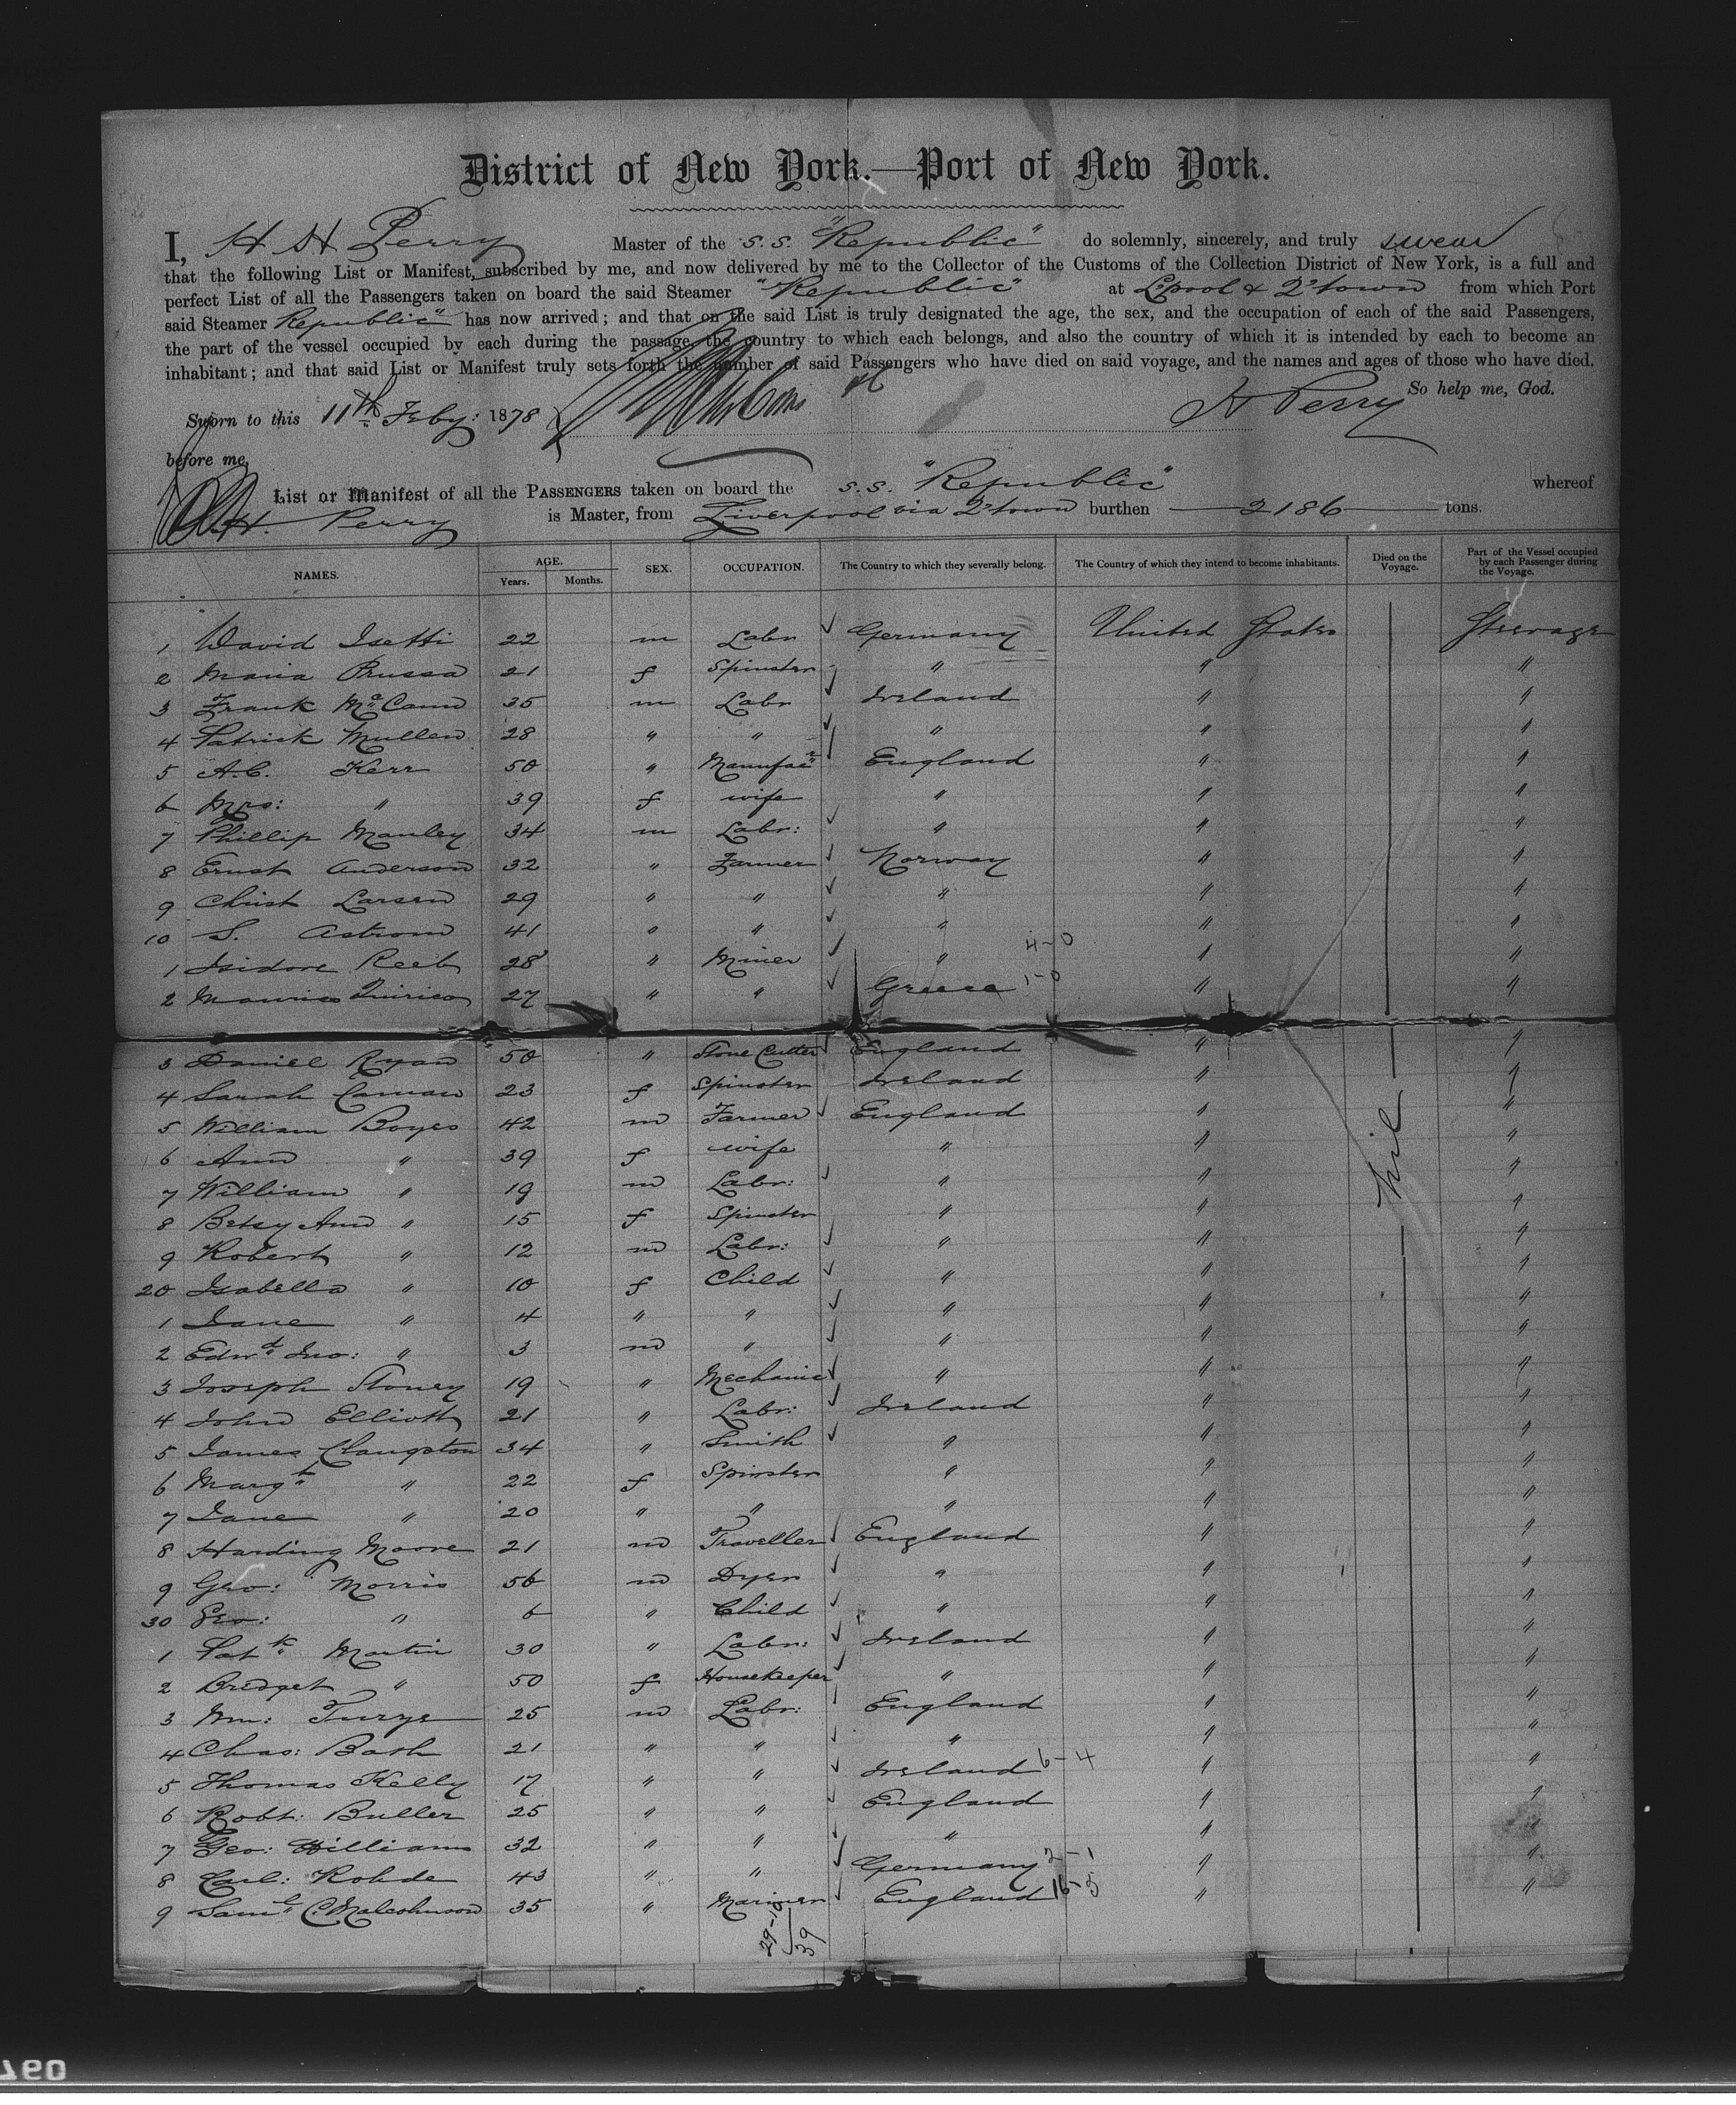 District of New York.—Port of New York.
I, H H Perry Master of the s.s. "Republic" do solemnly, sincerely, and truly swear
that the following List or Manifest, subscribed by me, and now delivered by me to the Collector of the Customs of the Collection District of New York, is a full and
perfect List of all the Passengers taken on board the said Steamer "Republic" at L'pool & Q'town from which Port
said Steamer Republic" has now arrived; and that on the said List is truly designated the age, the sex, and the occupation of each of the said Passengers,
the part of the vessel occupied by each during the passage, the country to which each belongs, and also the country of which it is intended by each to become an
inhabitant; and that said List or Manifest truly sets forth the number of said Passengers who have died on said voyage, and the names and ages of those who have died.
So help me, God.
Sworn to this 11th Feby: 1878 H Perry
before me,
List or Manifest of all the PASSENGERS taken on board the s.s. "Republic" whereof
H. Perry is Master, from Liverpool via Q'town burthen 2186 tons.
NAMES. AGE. Years. Months. SEX. OCCUPATION. The Country to which they severally belong. The Country of which they intend to become inhabitants. Died on the Voyage. Part of the Vessel occupied by each Passenger during the Voyage.
1 David Isetti 22 m Labr Germany United States Steerage
2 Maria Prussa 21 f Spinster " " "
3 Frank McCann 35 m Labr Ireland " "
4 Patrick Mullen 28 " " " " "
5 A.C. Kerr 50 " Manufacr England " "
6 Mrs: " 39 f wife " " "
7 Phillip Manley 34 m Labr: " " "
8 Ernst Anderson 32 " Farmer Norway " "
9 Christ Larsen 29 " " " " "
10 S. Astrom 41 " " " " "
1 Isidore Reeb 28 " Miner " 4-0 " "
2 Maurice 27 " " Greece 1-0 " "
3 Daniel Ryan 50 " Stone Cutter England " "
4 Sarah Caman 23 f Spinster Ireland " "
5 William Boyes 42 m Farmer England " "
6 Ann " 39 f wife " " nil "
7 William " 19 m Labr: " " "
8 Betsy Ann " 15 f Spinster " " "
9 Robert " 12 m Labr: " " "
20 Isabella " 10 f Child " " "
1 Jane " 4 " " " " "
2 Edwd Jno: " 3 m " " " "
3 Joseph Stoney 19 " Mechanic " " "
4 John Elliott 21 " Labr: Ireland " "
5 James Clangston 34 " Smith " " "
6 Margt " 22 f Spinster " " "
7 Jane " 20 " " " " "
8 Harding Moore 21 m Traveller England " "
9 Geo: Morris 56 m Dyer " " "
30 Geo: " 6 " Child " " "
1 Patk Martin 30 " Labr: Ireland " "
2 Bridget " 50 f Housekeeper " " "
3 Wm: Turye 25 m Labr: England " "
4 Chas: Bath 21 " " " " "
5 Thomas Kelly 17 " " Ireland 6-4 " "
6 Robt: Buller 25 " " England " "
7 Geo: Williams 32 " " " " "
8 Carl: Rohde 43 " " Germany 2-1 " "
9 Saml C. Malcolmson 35 " Mariner England 16-5 " "
29-10
39